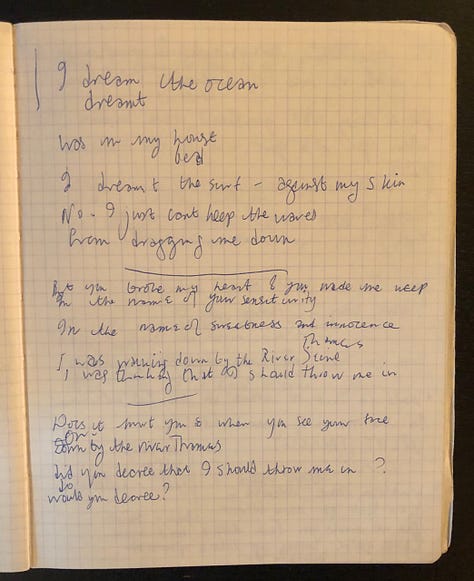 I dream the ocean
dreamt
was in my house
bed
I dreamt the surf - against my skin
No. I just cant keep the waves
from dragging me down
But you broke my heart & you made me weep
In the name of your sensitivity
In the name of sweetness and innocence
Thames
I, was walking down by the River Seine
I, was thinking that I should throw me in
Does it hurt you & when you see your face
On
Down by the river Thames
did you decree that I should throw me in ?
So
would you decree?